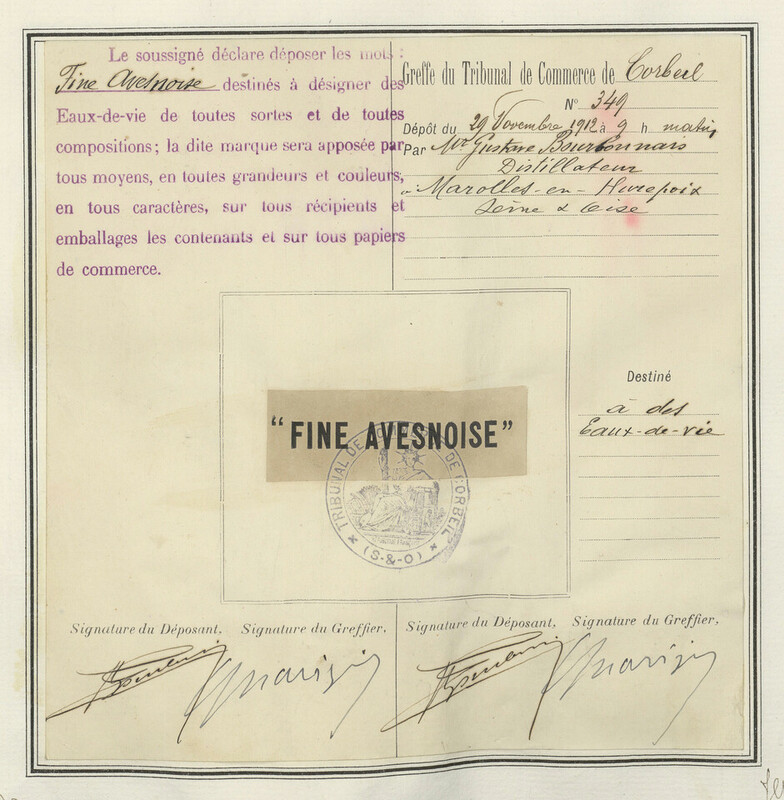 Le soussigné déclare déposer les mots :
Fine Avesnoise destinés à désigner des
Eaux-de-vie de toutes sortes et de toutes
compositions ; la dite marque sera apposée par
tous moyens, en toutes grandeurs et couleurs,
en tous caractères, sur tous récipients et
emballages les contenants et sur tous papiers
de commerce.
Greffe du Tribunal de Commerce de Corbeil
N° 349
Dépôt du 29 Novembre 1912 à 9 h matin,
Par Mr Gustave Bourbonnais
Distillateur
à Marolles-en-Hurepoix
Seine & Oise
Destiné
à des
Eaux-de-vie
"FINE AVESNOISE"
TRIBUNAL DE COMMERCE DE CORBEIL
(S-&-O)
Signature du Déposant, Signature du Greffier,
Signature du Déposant, Signature du Greffier,